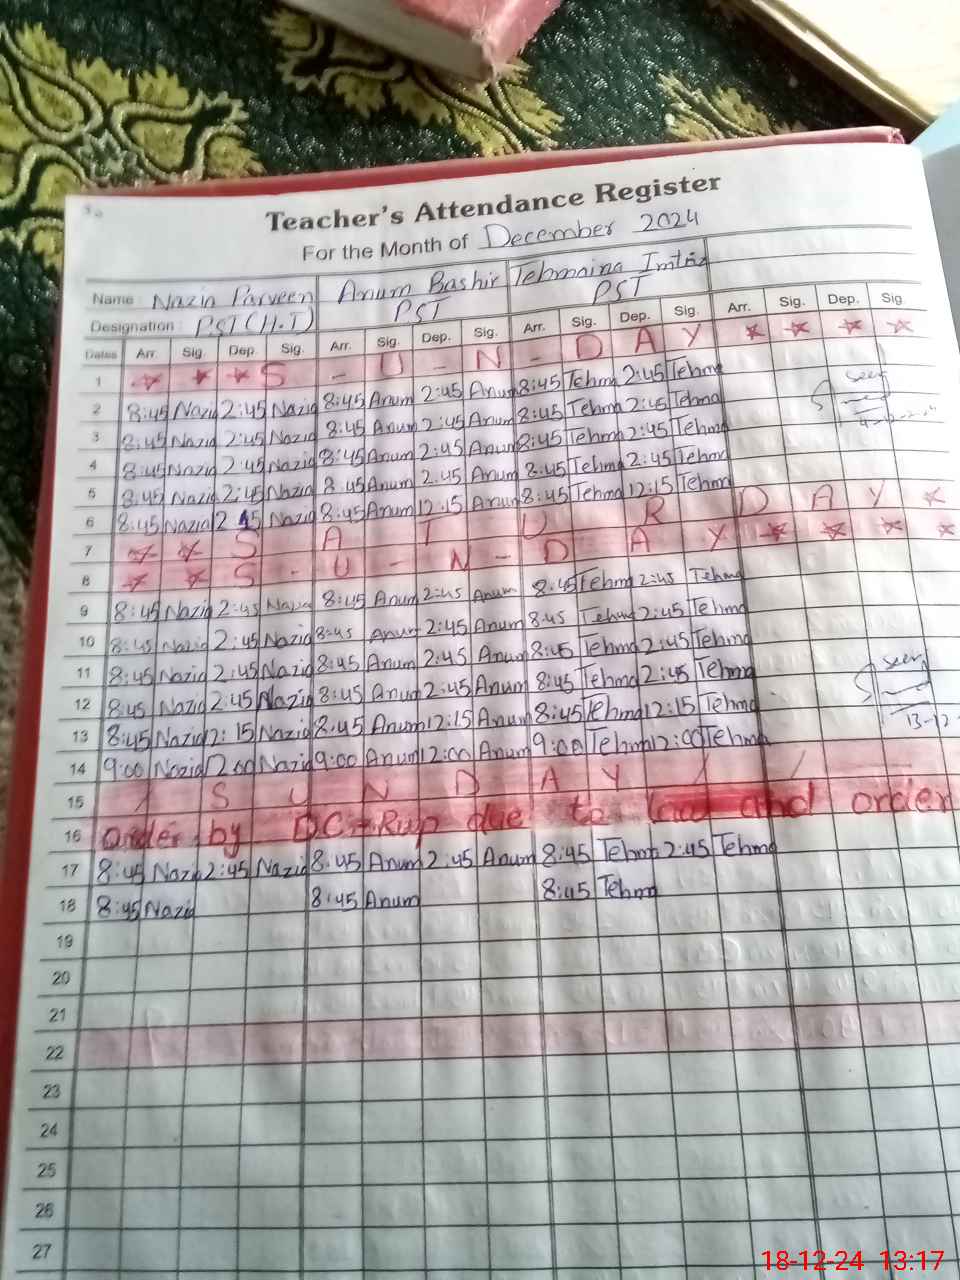 Teacher's Attendance Register
For the Month of December 2024
Name : Nazia Parveen Anum Bashir Tehmaina Imtiaz
Designation : PST (H.T) PST PST
Dates Arr. Sig. Dep. Sig. Arr. Sig. Dep. Sig. Arr. Sig. Dep. Sig. Arr. Sig. Dep. Sig
1 S - U - N - D A Y
2 8:45 Nazia 2:45 Nazia 8:45 Anum 2:45 Anum 8:45 Tehma 2:45 Tehma
seen
3 8:45 Nazia 2:45 Nazia 8:45 Anum 2:45 Anum 8:45 Tehma 2:45 Tehma
4 8:45 Nazia 2:45 Nazia 8:45 Anum 2:45 Anum 8:45 Tehma 2:45 Tehma
5 8:45 Nazia 2:45 Nazia 8:45 Anum 2:45 Anum 8:45 Tehma 2:45 Tehma
6 8:45 Nazia Nazia 8:45 Anum 12:15 Anum 8:45 Tehma 12:15 Tehma
7 S A T U R D A Y
8 S - U - N - D A Y
9 8:45 Nazia 2:45 Nazia 8:45 Anum 2:45 Anum 8:45 Tehma 2:45 Tehma
10 8:45 Nazia 2:45 Nazia 8:45 Anum 2:45 Anum 8:45 Tehma 2:45 Tehma
11 8:45 Nazia 2:45 Nazia 8:45 Anum 2:45 Anum 8:45 Tehma 2:45 Tehma
seen
12 8:45 Nazia 2:45 Nazia 8:45 Anum 2:45 Anum 8:45 Tehma 2:45 Tehma
13-12-
13 8:45 Nazia 12:15 Nazia 8:45 Anum 12:15 Anum 8:45 Tehma 12:15 Tehma
14 9:00 Nazia 12:00 Nazia 9:00 Anum 12:00 Anum 9:00 Tehma 12:00 Tehma
15 S U N D A Y
16 order by DC-Rwp due to law and order
17 8:45 Nazia 2:45 Nazia 8:45 Anum 2:45 Anum 8:45 Tehma 2:45 Tehma
18 8:45 Nazia 8:45 Anum 8:45 Tehma
19
20
21
22
23
24
25
26
27
18-12-24 13:17